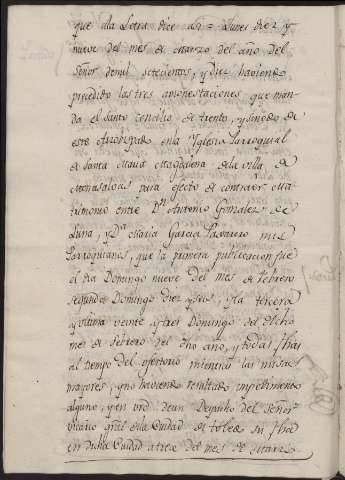 que ala Letra dice asi = Lunes diez y
nueve del mes de Marzo del año del
Señor demil setecientos, y
precedido las tres amonestaciones que man
da el Santo Concilio de trento, y sinodo de
este Arzobispado enla Yglesia Parroquial
de Santa Maria Magdalena dela villa de
Menasalbas para efecto de contraer Ma
trimonio entre Dn Antonio Gonzalez de
Luna, y Da Maria Garcia mis
Parroquianos, que la primera publicacion fue
el dia Domingo nueve del mes de febrero
segunda Domingo diez y seis, y la tercera
y ultima veinte y tres Domingo del dicho
mes de febrero del dho año, y todas fhas
al tiempo del ofertorio mientras las misas
mayores, y no haviendo resultado impedimento
alguno, y en vrd deun Despacho del Señor
Vicario gral dela Ciudad de toledo su fha
en dicha Ciudad atres del mes de Marzo